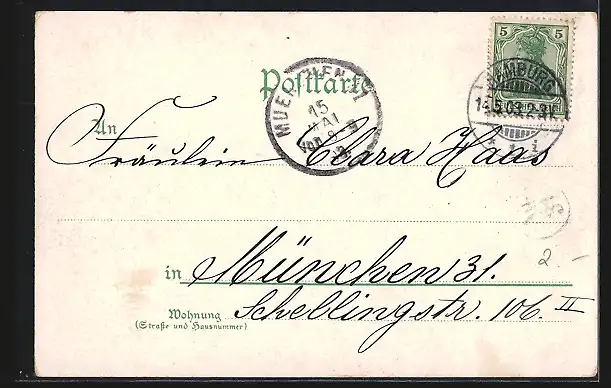 Postkarte
5
HAMBURG
14.5.03.2-3N.
MUENCHEN
15
MAI
Vor. 8-9
An
Fräulein Clara Haas
in München 31.
Wohnung Schellingstr. 106. II
(Straße und Hausnummer)
2.-